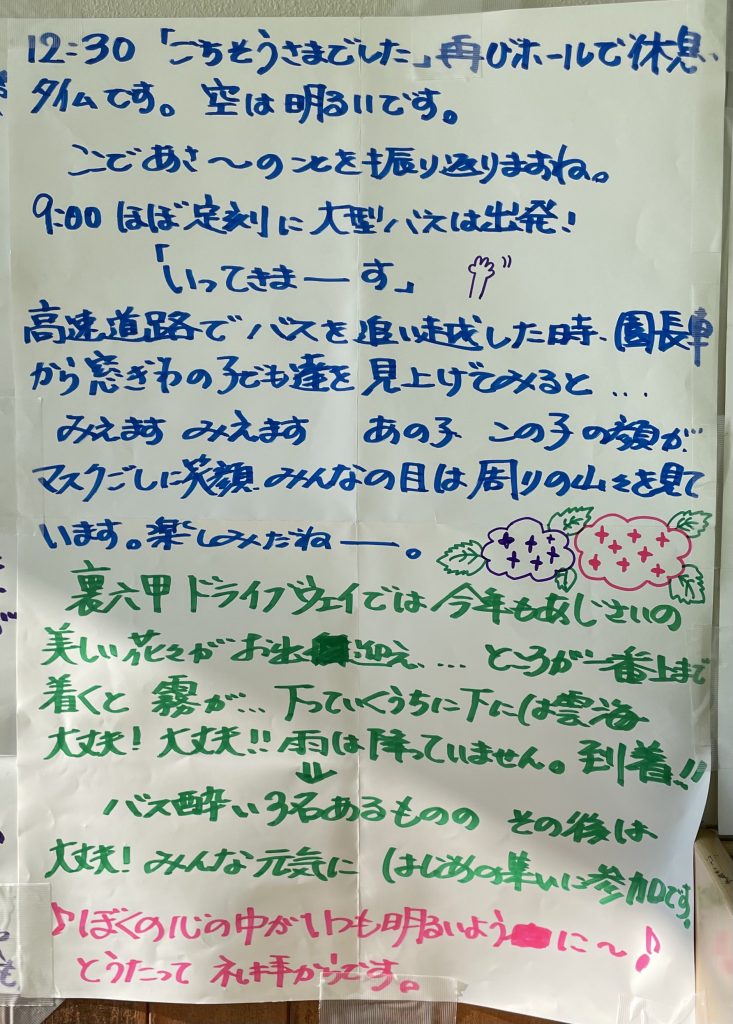 12:30 「ごちそうさまでした」再びホールで休息
タイムです。空は明るいです。
ここであさ〜のことを振り返りますね。
9:00 ほぼ定刻に大型バスは出発!
「いってきまーす」
高速道路でバスを追い越した時、園長車
から窓ぎわの子ども達を見上げてみると…
みえます みえます あの子 この子の顔が
マスクごしに笑顔 みんなの目は周りの山々を見て
います。楽しみだねー。
裏六甲ドライブウェイでは今年もあじさいの
美しい花々がお出迎え… ところが一番上まで
着くと霧が… 下っていくうちに下には雲海
大丈夫! 大丈夫!! 雨は降っていません。到着!!
⇓
バス酔い3名あるものの その後は
大丈夫! みんな元気に はじめの集いに参加です。
♪ぼくの心の中がいつも明るいように〜♪
とうたって 礼拝からです。